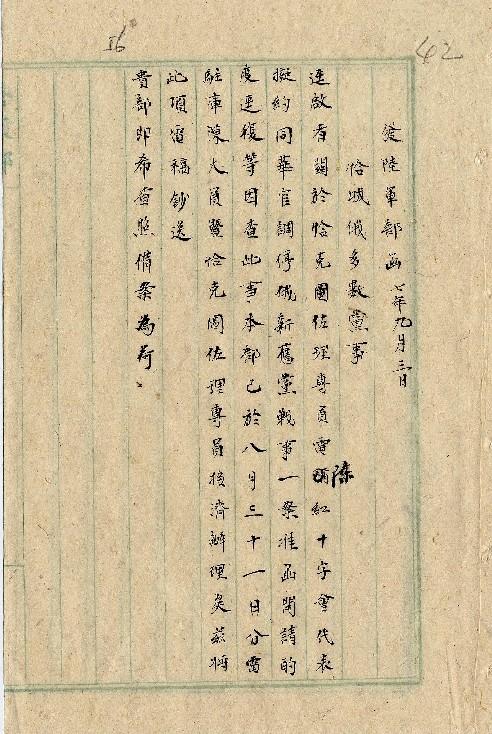 42
56
發陸軍部函 七年九月三日
恰城俄多數黨事
逕啟者關於恰克圖佐理專員電陳紅十字會代表
擬約同華官調停俄新舊黨戰事一案准函開請酌
度速復等因查此事本部已於八月三十一日分電
駐庫陳大員暨恰克圖佐理專員核濟辦理矣茲將
此項電稿鈔送
貴部即希查照備案為荷